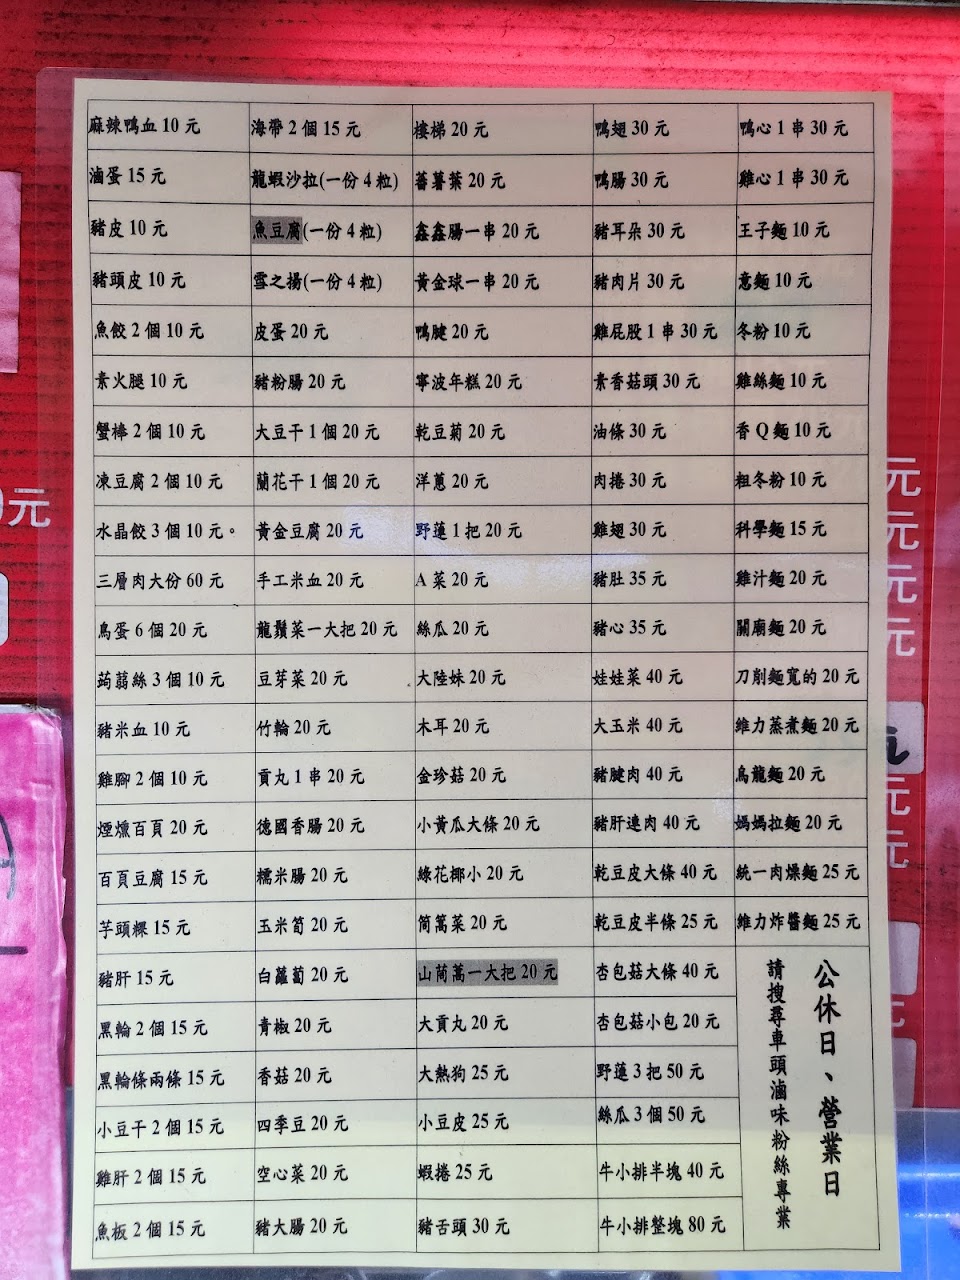 麻辣鴨血 10 元
滷蛋 15 元
豬皮 10 元
豬頭皮 10 元
魚餃 2 個 10 元
素火腿 10 元
蟹棒 2 個 10 元
凍豆腐 2 個 10 元
水晶餃 3 個 10 元。
三層肉大份 60 元
鳥蛋 6 個 20 元
蒟蒻絲 3 個 10 元
豬米血 10 元
雞腳 2 個 10 元
煙燻百頁 20 元
百頁豆腐 15 元
芋頭粿 15 元
豬肝 15 元
黑輪 2 個 15 元
黑輪條兩條 15 元
小豆干 2 個 15 元
雞肝 2 個 15 元
魚板 2 個 15 元
海帶 2 個 15 元
龍蝦沙拉(一份 4 粒)
魚豆腐(一份 4 粒)
雪之揚(一份 4 粒)
皮蛋 20 元
豬粉腸 20 元
大豆干 1 個 20 元
蘭花干 1 個 20 元
黃金豆腐 20 元
手工米血 20 元
龍鬚菜一大把 20 元
豆芽菜 20 元
竹輪 20 元
貢丸 1 串 20 元
德國香腸 20 元
糯米腸 20 元
玉米筍 20 元
白蘿蔔 20 元
青椒 20 元
香菇 20 元
四季豆 20 元
空心菜 20 元
豬大腸 20 元
樓梯 20 元
蕃薯葉 20 元
鑫鑫腸一串 20 元
黃金球一串 20 元
鴨腱 20 元
寧波年糕 20 元
乾豆菊 20 元
洋蔥 20 元
野蓮 1 把 20 元
A 菜 20 元
絲瓜 20 元
大陸妹 20 元
木耳 20 元
金珍菇 20 元
小黃瓜大條 20 元
綠花椰小 20 元
筒篙菜 20 元
山茼萵一大把 20 元
大貢丸 20 元
大熱狗 25 元
小豆皮 25 元
蝦捲 25 元
豬舌頭 30 元
鴨翅 30 元
鴨腸 30 元
豬耳朵 30 元
豬肉片 30 元
雞屁股 1 串 30 元
素香菇頭 30 元
油條 30 元
肉捲 30 元
雞翅 30 元
豬肚 35 元
豬心 35 元
娃娃菜 40 元
大玉米 40 元
豬腱肉 40 元
豬肝連肉 40 元
乾豆皮大條 40 元
乾豆皮半條 25 元
杏包菇大條 40 元
杏包菇小包 20 元
野蓮 3 把 50 元
絲瓜 3 個 50 元
牛小排半塊 40 元
牛小排整塊 80 元
鴨心 1 串 30 元
雞心 1 串 30 元
王子麵 10 元
意麵 10 元
冬粉 10 元
雞絲麵 10 元
香 Q 麵 10 元
粗冬粉 10 元
科學麵 15 元
雞汁麵 20 元
關廟麵 20 元
刀削麵寬的 20 元
維力蒸煮麵 20 元
烏龍麵 20 元
媽媽拉麵 20 元
統一肉燥麵 25 元
維力炸醬麵 25 元
公休日、營業日
請搜尋車頭滷味粉絲專業
元
元
元
元
元
元
元